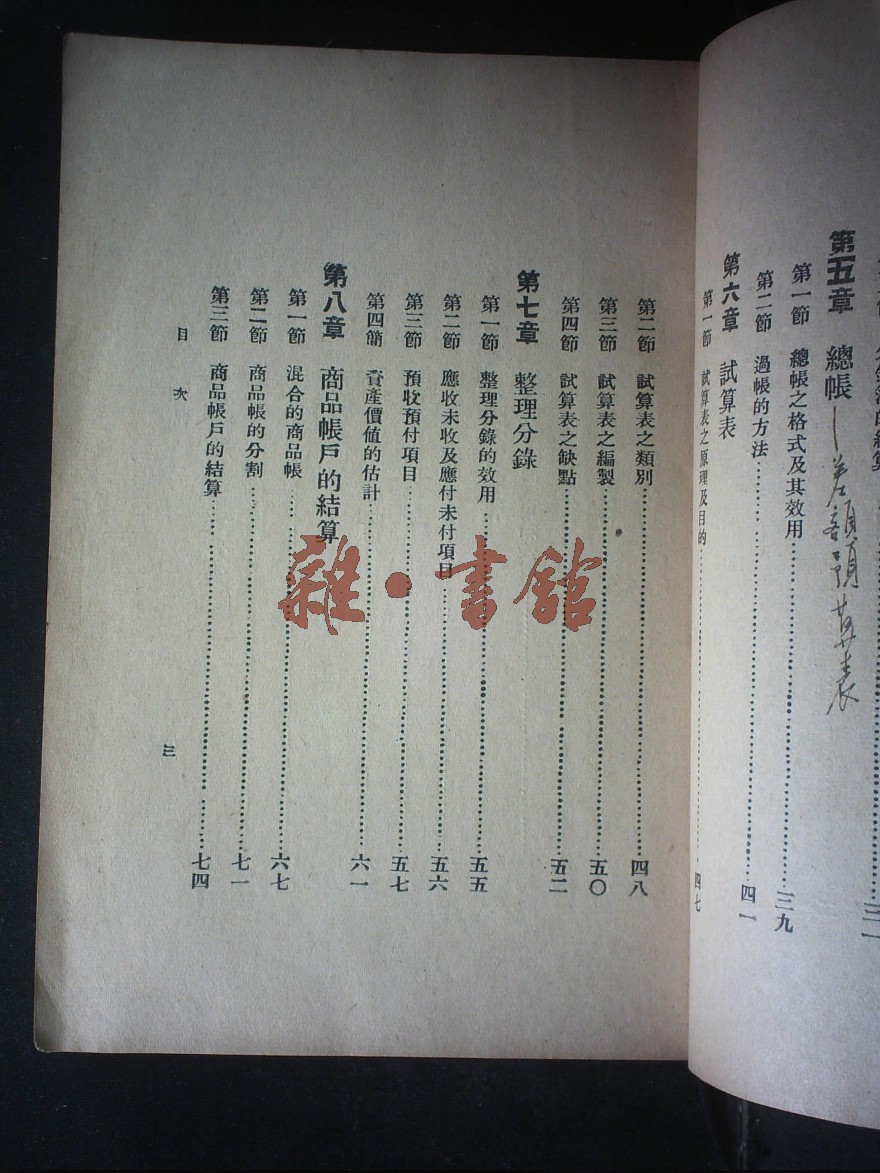 第五章 總帳
第一節 總帳之格式及其效用 三九
第二節 過帳的方法 四一
第六章 試算表
第一節 試算表之原理及目的 四七
第二節 試算表之類別 四八
第三節 試算表之編製 五〇
第四節 試算表之缺點 五二
第七章 整理分錄
第一節 整理分錄的效用 五五
第二節 應收未收及應付未付項目 五六
第三節 預收預付項目 五七
第四節 資產價値的估計 六一
第八章 商品帳戶的結算
第一節 混合的商品帳 六七
第二節 商品帳的分割 七一
第三節 商品帳戶的結算 七四
目次 三
雜·書館